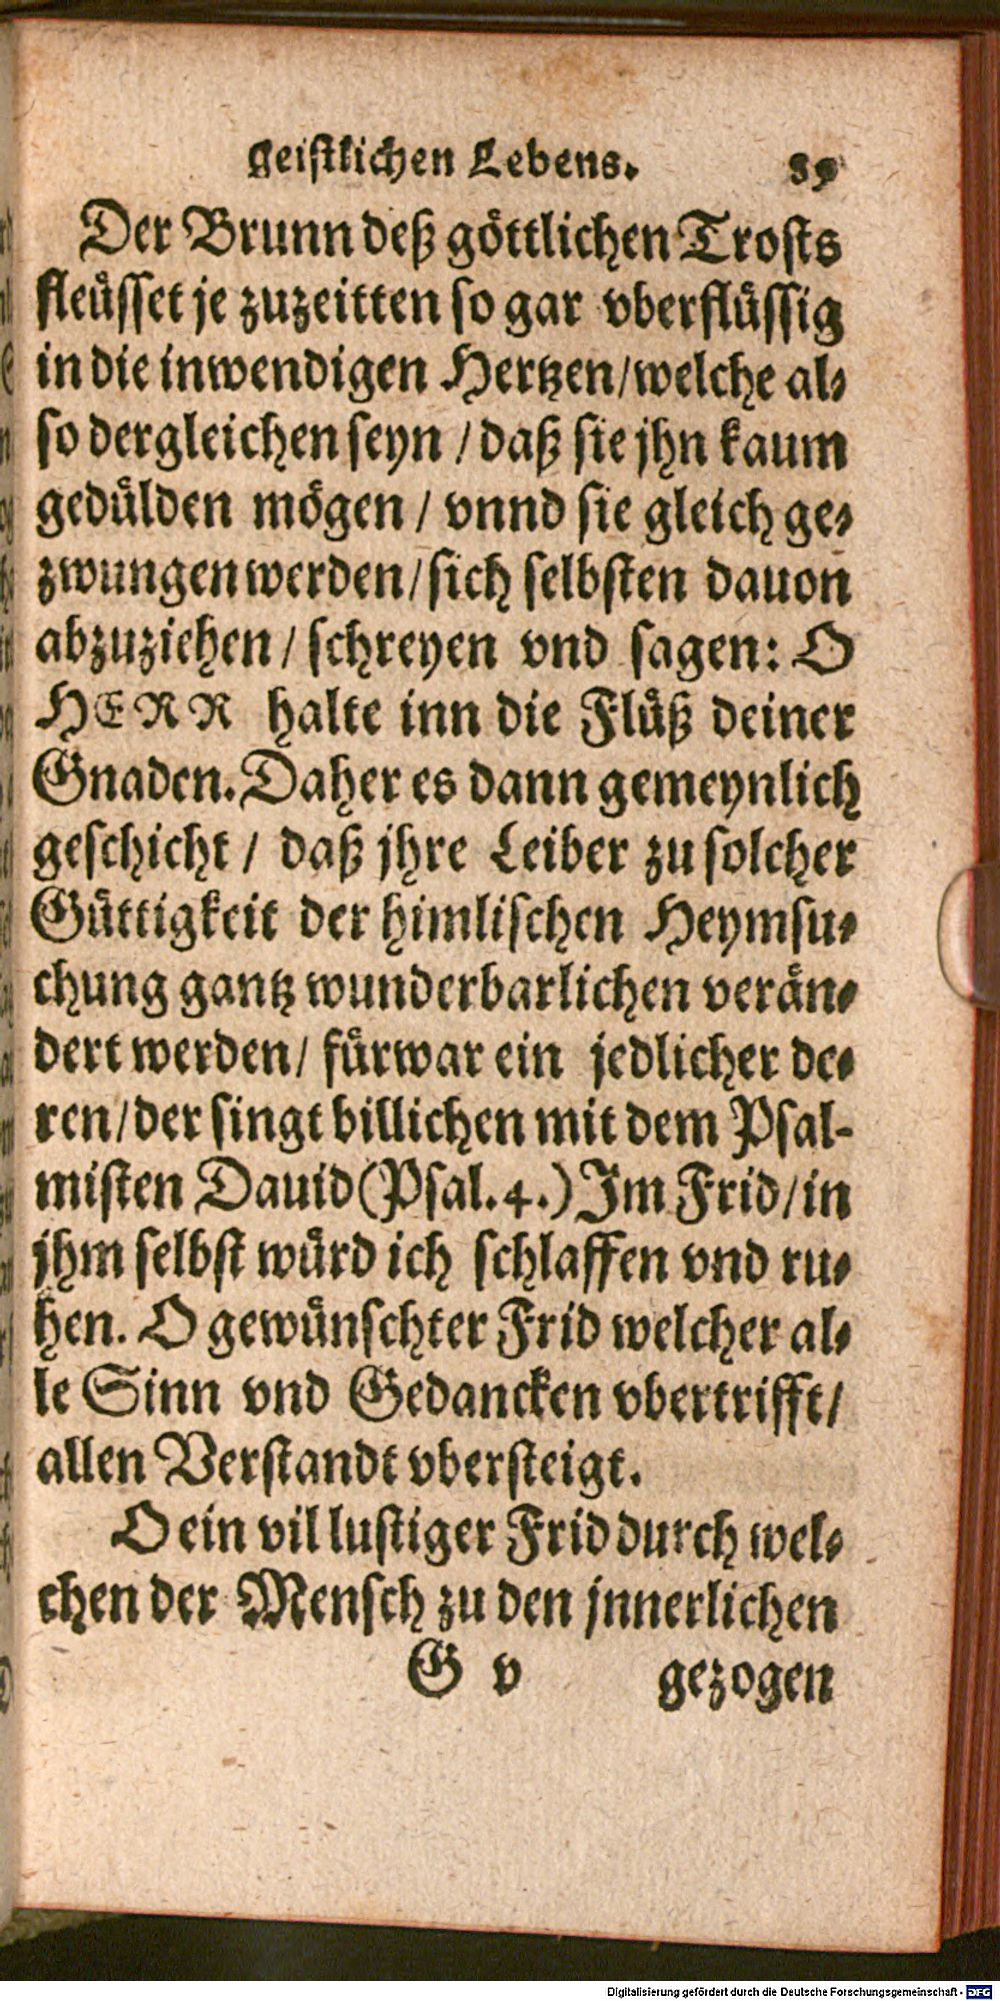 geistlichen Lebens. 89
Der Brunn deß göttlichen Trosts
fleüsset je zuzeitten so gar vberflüssig
in die inwendigen Hertzen/welche al-
so dergleichen seyn / daß sie jhn kaum
gedülden mögen / vnnd sie gleich ge-
zwungen werden/sich selbsten dauon
abzuziehen / schreyen vnd sagen: O
HERR halte inn die Flüß deiner
Gnaden. Daher es dann gemeynlich
geschicht / daß jhre Leiber zu solcher
Güttigkeit der himlischen Heymsu-
chung gantz wunderbarlichen verän-
dert werden/ fürwar ein jedlicher de-
ren/der singt billichen mit dem Psal-
misten Dauid (Psal. 4.) Im Frid/in
jhm selbst würd ich schlaffen vnd ru-
hen. O gewünschter Frid welcher al-
le Sinn vnd Gedancken vbertrifft/
allen Verstandt vbersteigt.
O ein vil lustiger Frid durch wel-
chen der Mensch zu den jnnerlichen
G v gezogen
Digitalisierung gefördert durch die Deutsche Forschungsgemeinschaft - DFG